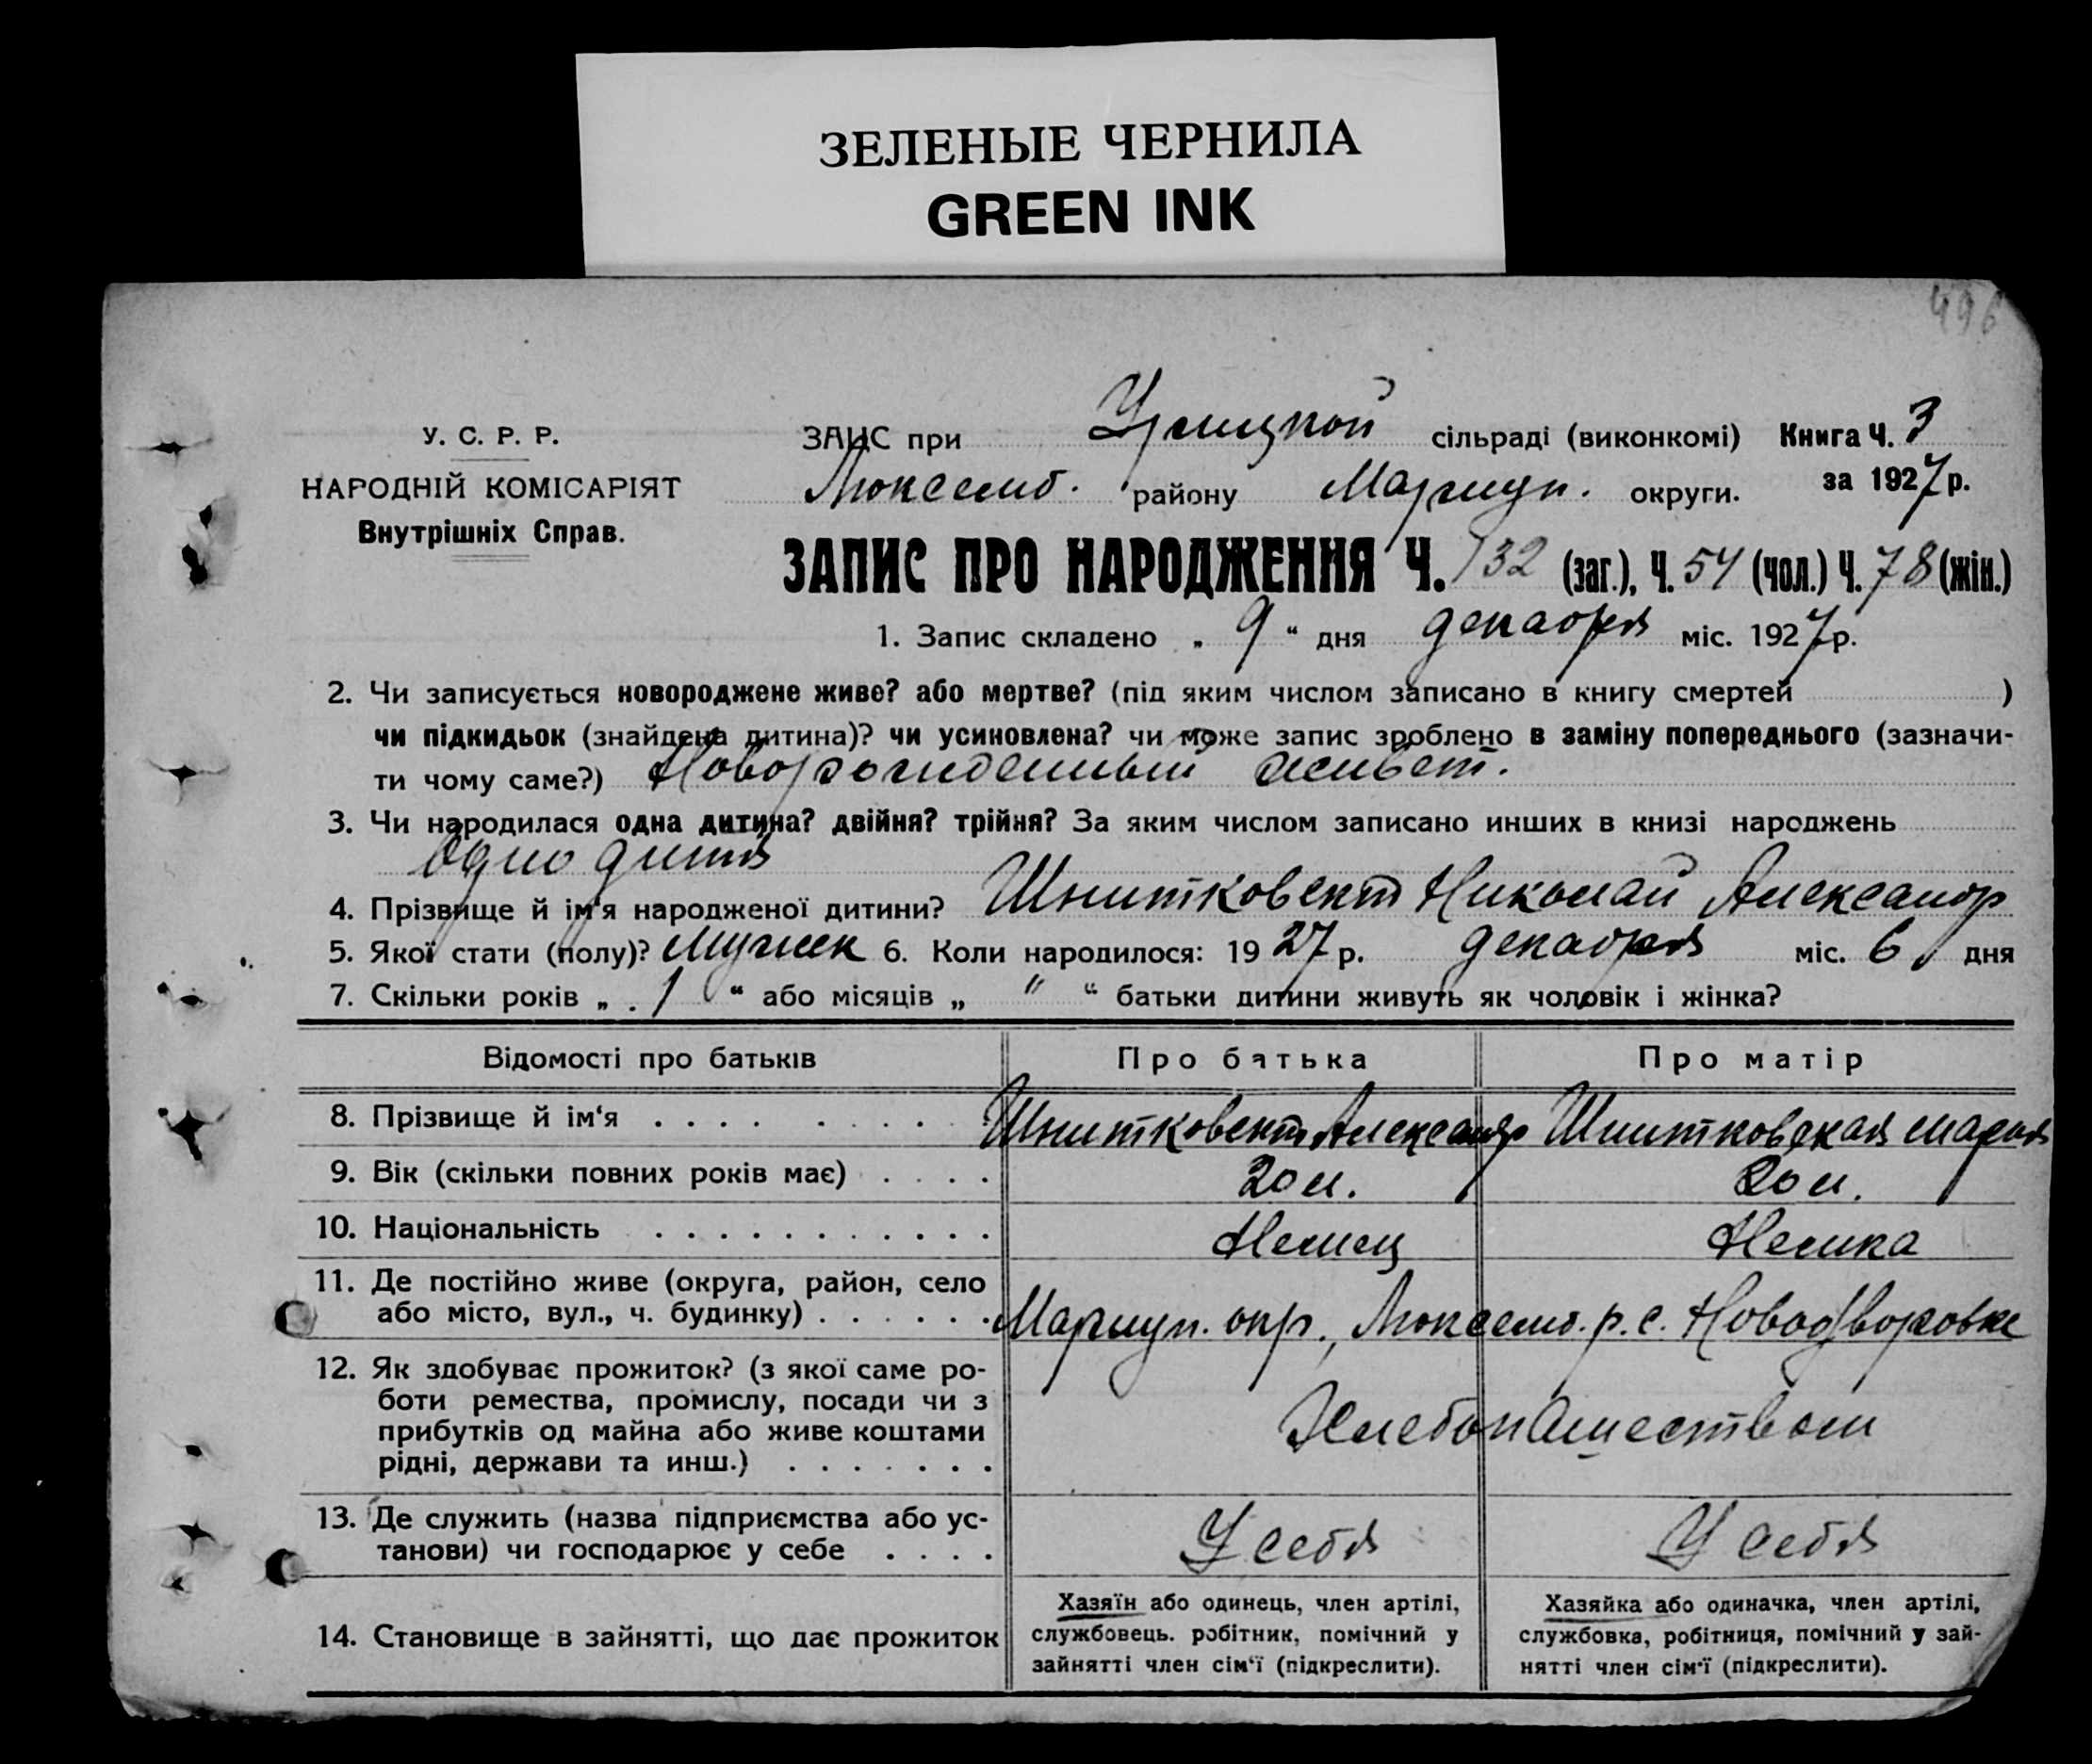 ЗЕЛЕНЫЕ ЧЕРНИЛА
GREEN INK
496
У. С. Р. Р.
НАРОДНІЙ КОМІСАРІЯТ
Внутрішніх Справ.
ЗАЦС при сільраді (виконкомі) Книга Ч. 3
Люксемб. району Мариуп. округи. за 1927 р.
ЗАПИС ПРО НАРОДЖЕННЯ Ч. 132 (заг.), Ч. 54 (чол.) Ч. 78 (жін.)
1. Запис складено „ 9 “ дня декабря міс. 1927 р.
2. Чи записується новороджене живе? або мертве? (під яким числом записано в книгу смертей )
чи підкидьок (знайдена дитина)? чи усиновлена? чи може запис зроблено в заміну попереднього (зазначи-
ти чому саме?) Новорожиденный живет.
3. Чи народилася одна дитина? двійня? трійня? За яким числом записано инших в книзі народжень
Одно дитя
4. Прізвище й ім'я народженої дитини? Шнитковскт Николай Александр
5. Якої стати (полу)? Мужск 6. Коли народилося: 19 27 р. декабря міс. 6 дня
7. Скільки років „ 1 “ або місяців „ " “ батьки дитини живуть як чоловік і жінка?
Відомості про батьків
Про батька
Про матір
8. Прізвище й ім‘я
Шнитковскт Александр
Шнитковская Мария
9. Вік (скільки повних років має)
20 л.
20 л.
10. Національність
Немец
Немка
11. Де постійно живе (округа, район, село
або місто, вул., ч. будинку)
Мариуп. окр., Люксемб. р. с. Новодворовке
12. Як здобуває прожиток? (з якої саме ро-
боти ремества, промислу, посади чи з
прибутків од майна або живе коштами
рідні, держави та инш.)
Хлебопашеством
13. Де служить (назва підприємства або ус-
танови) чи господарює у себе
У себя
У себя
14. Становище в зайнятті, що дає прожиток
Хазяїн або одинець, член артілі,
службовець. робітник, помічний у
зайнятті член сім‘ї (підкреслити).
Хазяйка або одиначка, член артілі,
службовка, робітниця, помічний у зай-
нятті член сім‘ї (підкреслити).